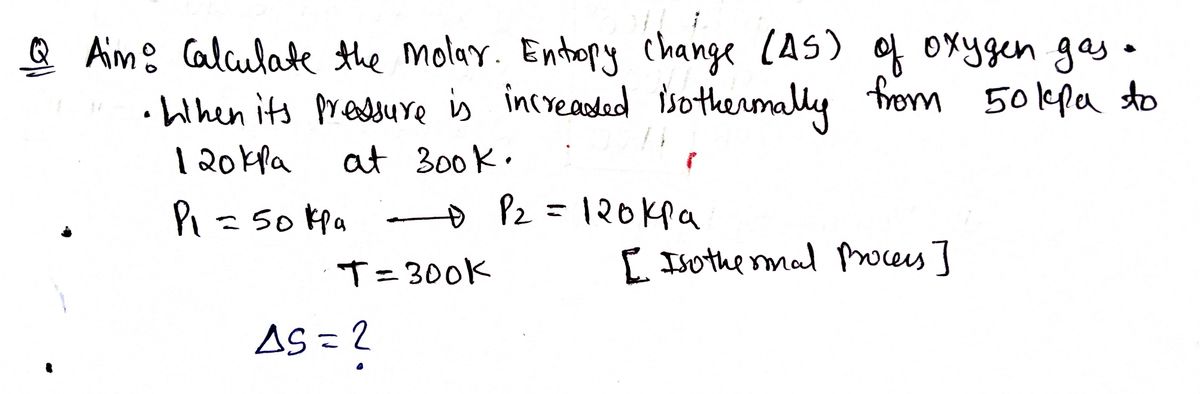 Q Aim: Calculate the molar. Entropy change (ΔS) of oxygen gas.
. When its pressure is increased isothermally from 50 kPa to
120 kPa at 300 K.
P1 = 50 kPa → P2 = 120 kPa
T = 300 K [Isothermal Process]
ΔS = ?